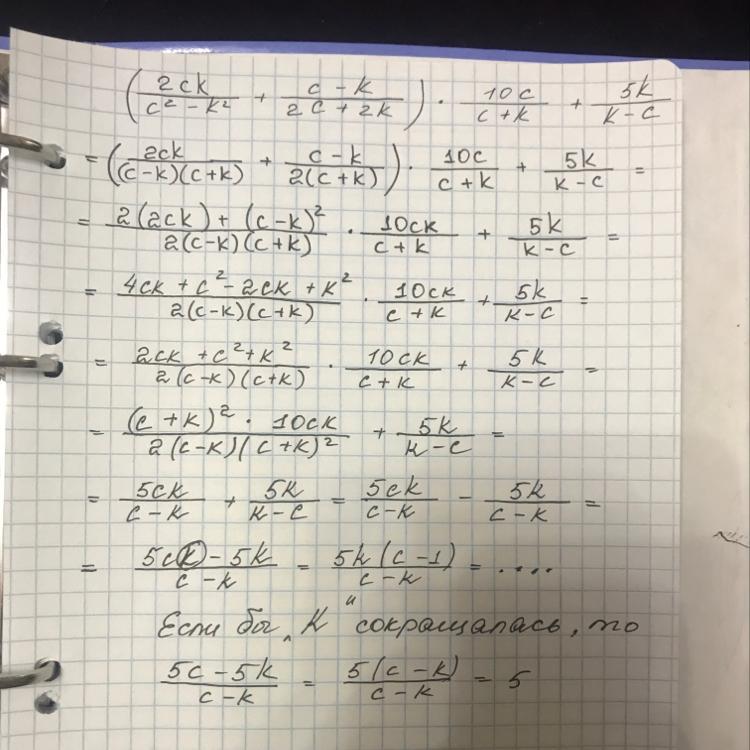 (2ck/(c² - k²) + (c - k)/(2c + 2k)) · 10c/(c + k) + 5k/(k - c)
= (2ck/((c-k)(c+k)) + (c-k)/(2(c+k))) · 10c/(c+k) + 5k/(k-c) =
= (2(2ck) + (c-k)²)/(2(c-k)(c+k)) · 10ck/(c+k) + 5k/(k-c) =
= (4ck + c² - 2ck + k²)/(2(c-k)(c+k)) · 10ck/(c+k) + 5k/(k-c) =
= (2ck + c² + k²)/(2(c-k)(c+k)) · 10ck/(c+k) + 5k/(k-c) =
= ((c+k)² · 10ck)/(2(c-k)(c+k)²) + 5k/(k-c) =
= 5ck/(c-k) + 5k/(k-c) = 5ck/(c-k) - 5k/(c-k) =
= (5ck - 5k)/(c-k) = 5k(c-1)/(c-k) = ....
Если бы „К" сокращалась, то
(5c - 5k)/(c-k) = 5(c-k)/(c-k) = 5